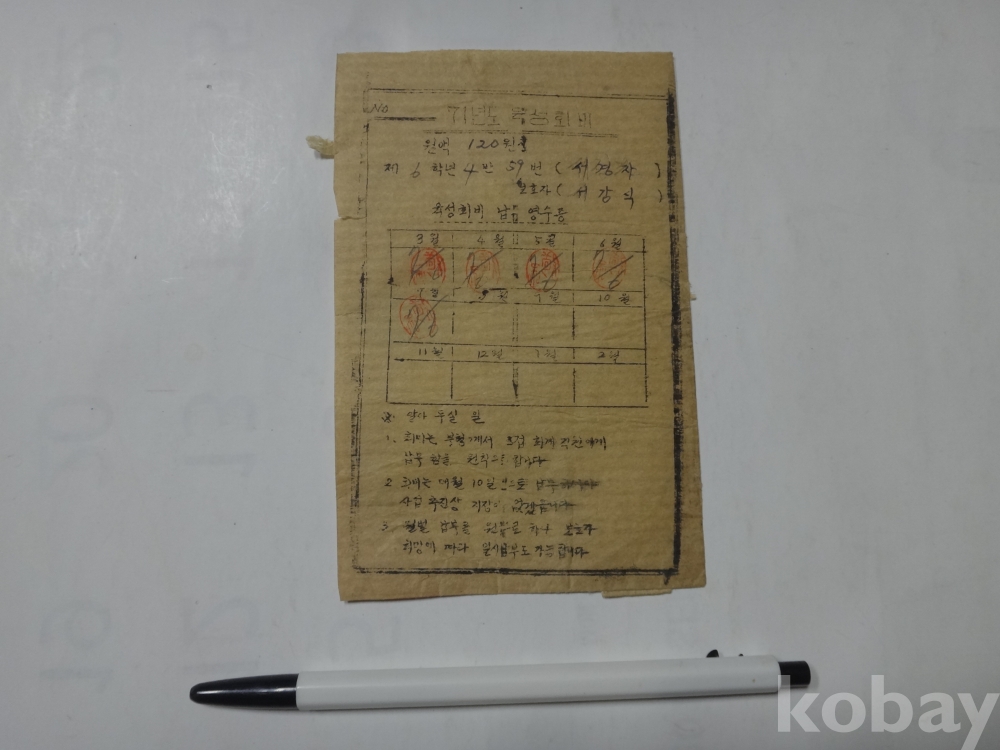 No
71년도 육성회비
월액 120원
제 6 학년 4 반 59 번 ( 서경자 )
보호자 ( 서강익 )
육성회비 납입 영수증
3월 4월 5월 6월
7월 월 월 10월
11월 12월 1월 2월
알아 두실 일
1. 회비는 회계
납부 원칙으로 합니다
2 회비는 매월 10일
사업 추진상 지장이
3. 월별 납부를 원칙으로 하나 보호자
희망에 따라 일시납부도 가능합니다
kobay